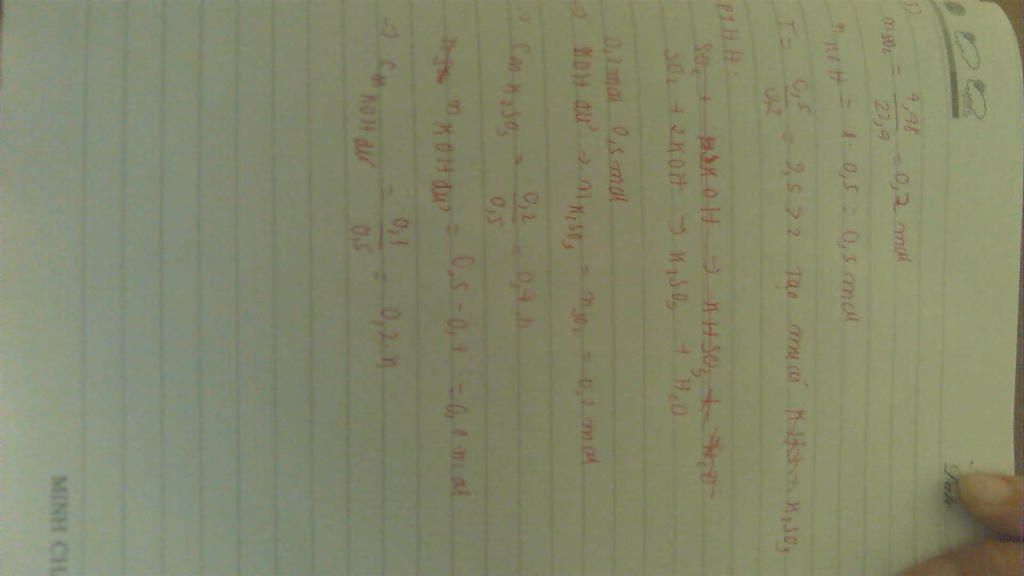 5)
nSO₂ = 4,48 / 22,4 = 0,2 mol
nKOH = 1 . 0,5 = 0,5 mol
T = 0,5 / 0,2 = 2,5 > 2 tạo muối K₂SO₃
PTHH:
SO₂ + KOH → KHSO₃ + H₂O
SO₂ + 2KOH → K₂SO₃ + H₂O
0,2mol 0,5mol
→ KOH dư → nK₂SO₃ = nSO₂ = 0,2 mol
→ CM K₂SO₃ = 0,2 / 0,5 = 0,4 M
nKOH dư = 0,5 - 0,4 = 0,1 mol
→ CM KOH dư = 0,1 / 0,5 = 0,2 M
MINH CH